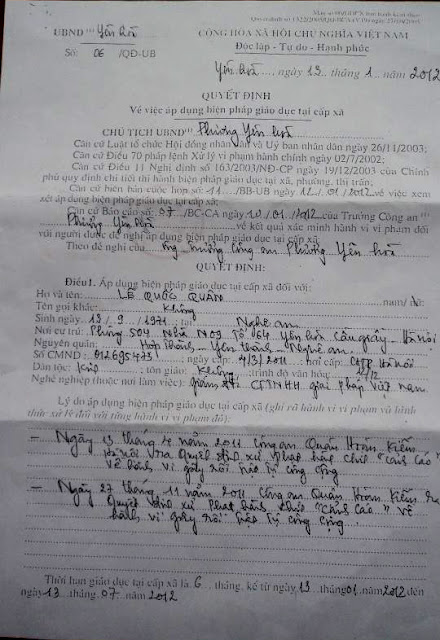 UBND Yên hoà CỘNG HÒA XÃ HỘI CHỦ NGHĨA VIỆT NAM
Số: 06 /QĐ-UB Độc lập - Tự do - Hạnh phúc
Yên hoà, ngày 13 tháng 1 năm 2012
QUYẾT ĐỊNH
Về việc áp dụng biện pháp giáo dục tại cấp xã
CHỦ TỊCH UBND Phường Yên hoà
Căn cứ Luật tổ chức Hội đồng nhân dân và Uỷ ban nhân dân ngày 26/11/2003;
Căn cứ Điều 70 pháp lệnh Xử lý vi phạm hành chính ngày 02/7/2002;
Căn cứ Điều 11 Nghị định số 163/2003/NĐ-CP ngày 19/12/2003 của Chính
phủ quy định chi tiết thi hành biện pháp giáo dục tại xã, phường, thị trấn;
Căn cứ biên bản cuộc họp số: 11 /BB-UB ngày 12 / 01 / 2012 về việc xem
xét áp dụng biện pháp giáo dục tại cấp xã;
Căn cứ Báo cáo số: 07 /BC-CA ngày 10 / 01 / 2012 của Trưởng Công an
Phường Yên hoà về kết quả xác minh hành vi vi phạm đối
với người được đề nghị áp dụng biện pháp giáo dục tại cấp xã;
Theo đề nghị của ông trưởng công an Phường Yên hoà
QUYẾT ĐỊNH:
Điều 1. Áp dụng biện pháp giáo dục tại cấp xã đối với:
Họ và tên: LÊ QUỐC QUÂN nam/nữ:
Tên gọi khác: Không
Sinh ngày 13 / 9 / 1971 tại Nghệ an
Nơi cư trú: Phòng 504 Nhà N09 Tổ 64 Yên hoà Cầu giấy - Hà nội
Nguyên quán: Hợp thành - Yên thành - Nghệ an.
Số CMND: ngày cấp: 4/3/2011 nơi cấp: CATP Hà nội
Dân tộc: Kinh tôn giáo: Không trình độ văn hóa: 12/12
Nghề nghiệp (thuộc nơi làm việc): giám đốc CTTNHH giải pháp Việt nam
Lý do áp dụng biện pháp giáo dục tại cấp xã (ghi rõ hành vi vi phạm và hình
thức xử lý đối với từng hành vi vi phạm đó):
- Ngày 13 tháng 4 năm 2011 công an Quận Hoàn Kiếm
Hà nội ra Quyết định xử phạt hành chính "Cảnh Cáo"
về hành vi gây rối trật tự công cộng
- Ngày 27 tháng 11 năm 2011 Công an Quận Hoàn Kiếm ra
Quyết định xử phạt hành chính "Cảnh Cáo" về
hành vi gây rối trật tự công cộng.
Thời hạn giáo dục tại cấp xã là 6 tháng, kể từ ngày 13 tháng 01 năm 2012 đến
ngày 13 tháng 07 năm 2012